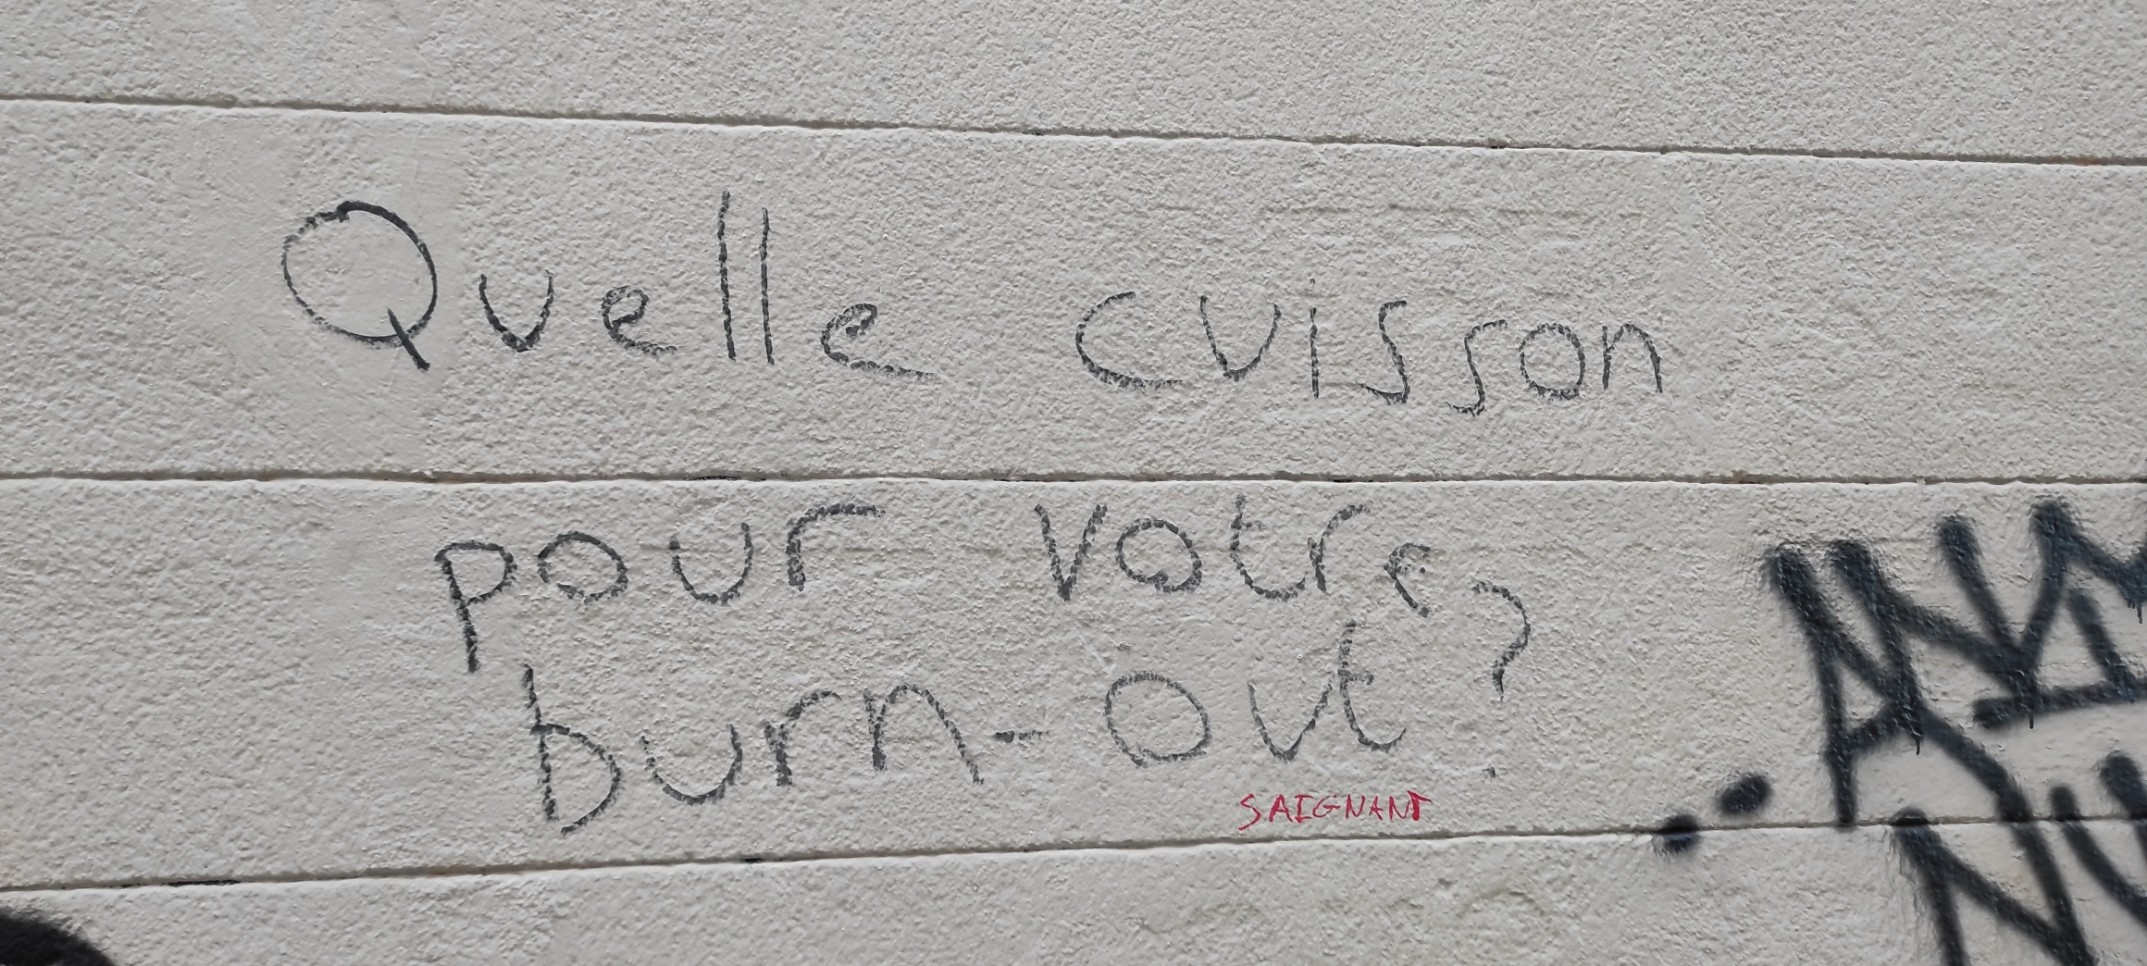 Quelle cuisson
pour votre
burn-out?
SAIGNANT